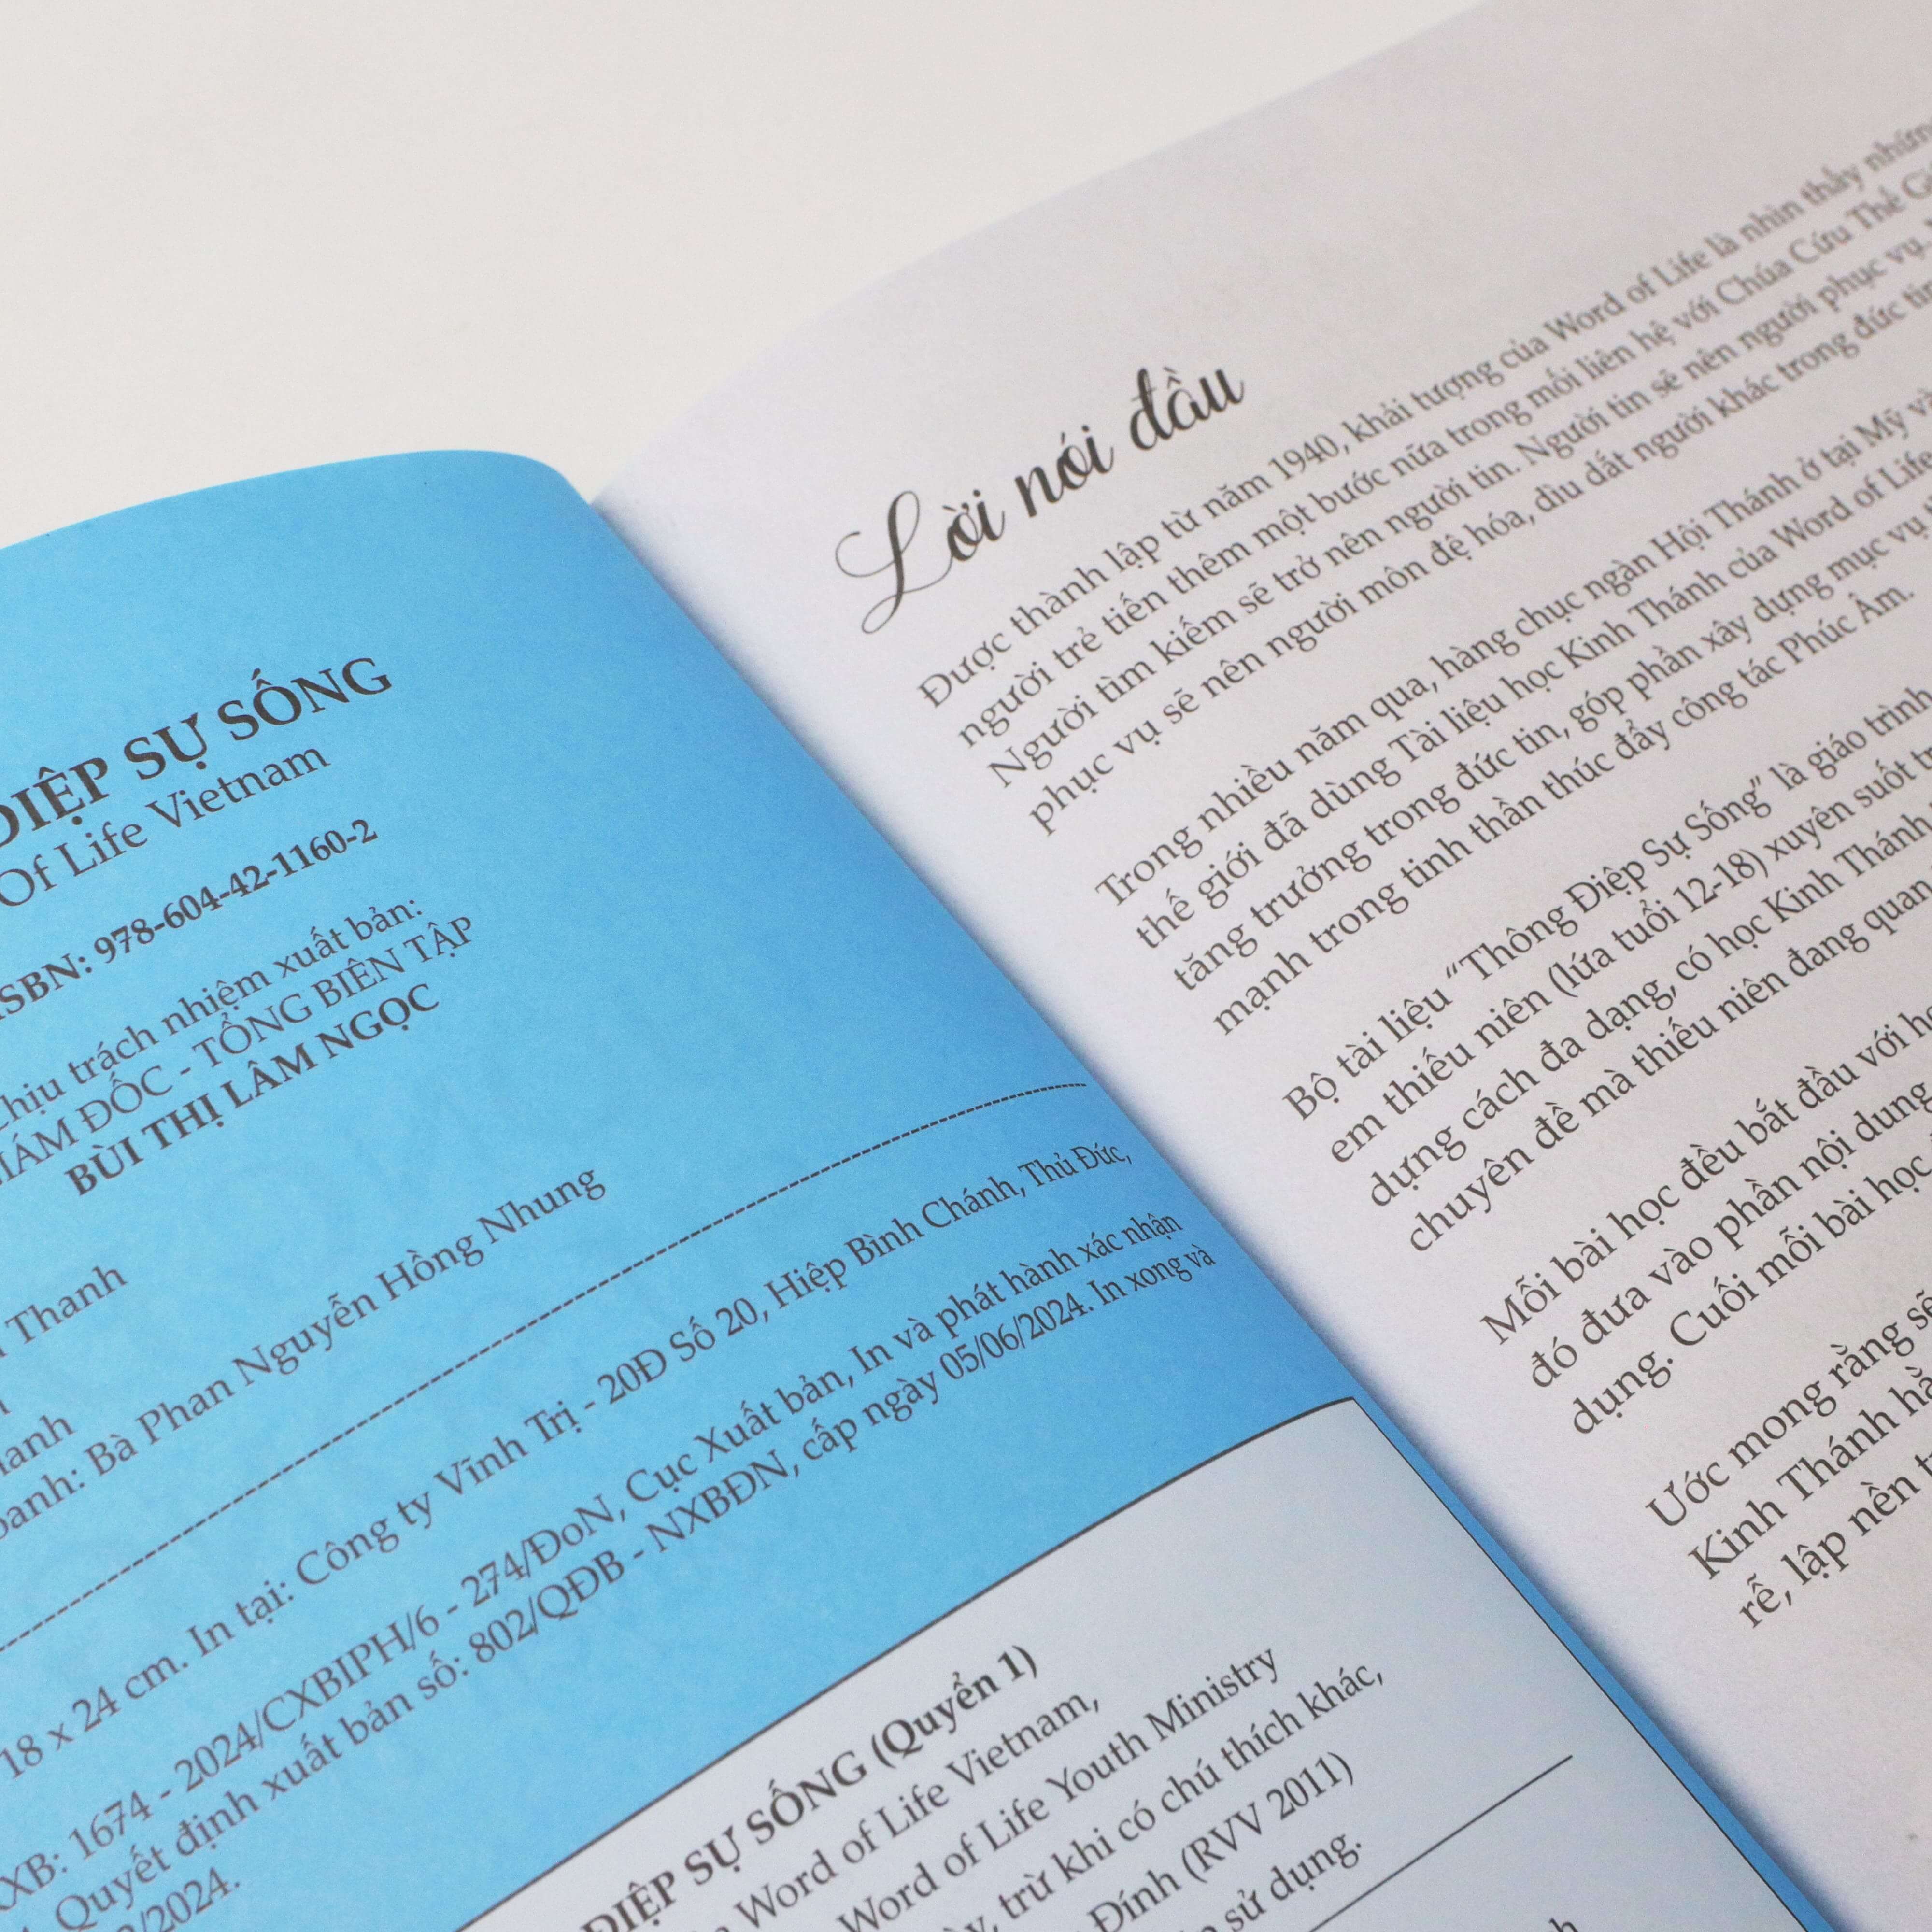 ĐIỆP SỰ SỐNG
Of Life Vietnam
ISBN: 978-604-42-1160-2
Chịu trách nhiệm xuất bản:
GIÁM ĐỐC - TỔNG BIÊN TẬP
BÙI THỊ LÂM NGỌC
Thanh
Bà Phan Nguyễn Hồng Nhung
18 x 24 cm. In tại: Công ty Vĩnh Trị - 20Đ Số 20, Hiệp Bình Chánh, Thủ Đức,
XB: 1674 - 2024/CXBIPH/6 - 274/ĐoN, Cục Xuất bản, In và phát hành xác nhận
Quyết định xuất bản số: 802/QĐB - NXBĐN, cấp ngày 05/06/2024. In xong và
/2024.
ĐIỆP SỰ SỐNG (Quyển 1)
Word of Life Vietnam,
Word of Life Youth Ministry
trừ khi có chú thích khác,
Đính (RVV 2011)
sử dụng.
Lời nói đầu
Được thành lập từ năm 1940, khải tượng của Word of Life là nhìn thấy những
người trẻ tiến thêm một bước nữa trong mối liên hệ với Chúa Cứu Thế
Người tìm kiếm sẽ trở nên người tin. Người tin sẽ nên người phục vụ.
phục vụ sẽ nên người môn đệ hóa, dìu dắt người khác trong đức tin
Trong nhiều năm qua, hàng chục ngàn Hội Thánh ở tại Mỹ và
thế giới đã dùng Tài liệu học Kinh Thánh của Word of Life
tăng trưởng trong đức tin, góp phần xây dựng mục vụ
mạnh trong tinh thần thúc đẩy công tác Phúc Âm.
Bộ tài liệu “Thông Điệp Sự Sống” là giáo trình
em thiếu niên (lứa tuổi 12-18) xuyên suốt
dựng cách đa dạng, có học Kinh Thánh
chuyên đề mà thiếu niên đang quan
Mỗi bài học đều bắt đầu với
đó đưa vào phần nội dung
dụng. Cuối mỗi bài học
Ước mong rằng sẽ
Kinh Thánh
rễ, lập nền